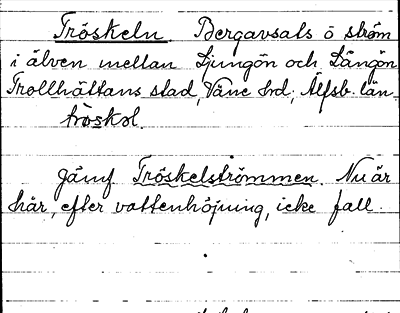 Tröskeln. Bergavsats o ström
i älven mellan Ljungön och Långön
Trollhättans stad, Väne hrd, Älfsb. län
tröskol.
Jämf Tröskelströmmen. Nu är
här, efter vattenhöjning, icke fall.